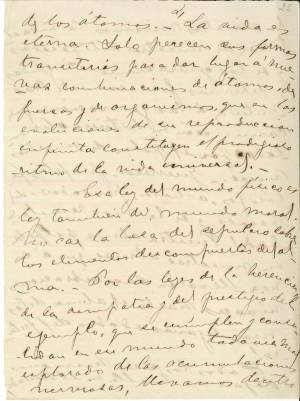 4
de los átomos. - La vida es
eterna. Solo perecen sus formas
transitorias para dar lugar a nue
vas combinaciones de átomos, de
fuerzas y de organismos, que en las
evoluciones de su reproduccion
infinita constituyen el prodigioso
ritmo de la vida universal. -
Esa ley del mundo fisico es
ley tambien del mundo moral.
No cae la losa del sepulcro sobre
los elementos descompuestos del al
ma. - Por las leyes de la herencia,
de la simpatia y del prestigio del
ejemplo, que se cumplen y conso
lidan en ese mundo todavia no
explorado de las acumulaciones
nerviosas, llevamos dentro